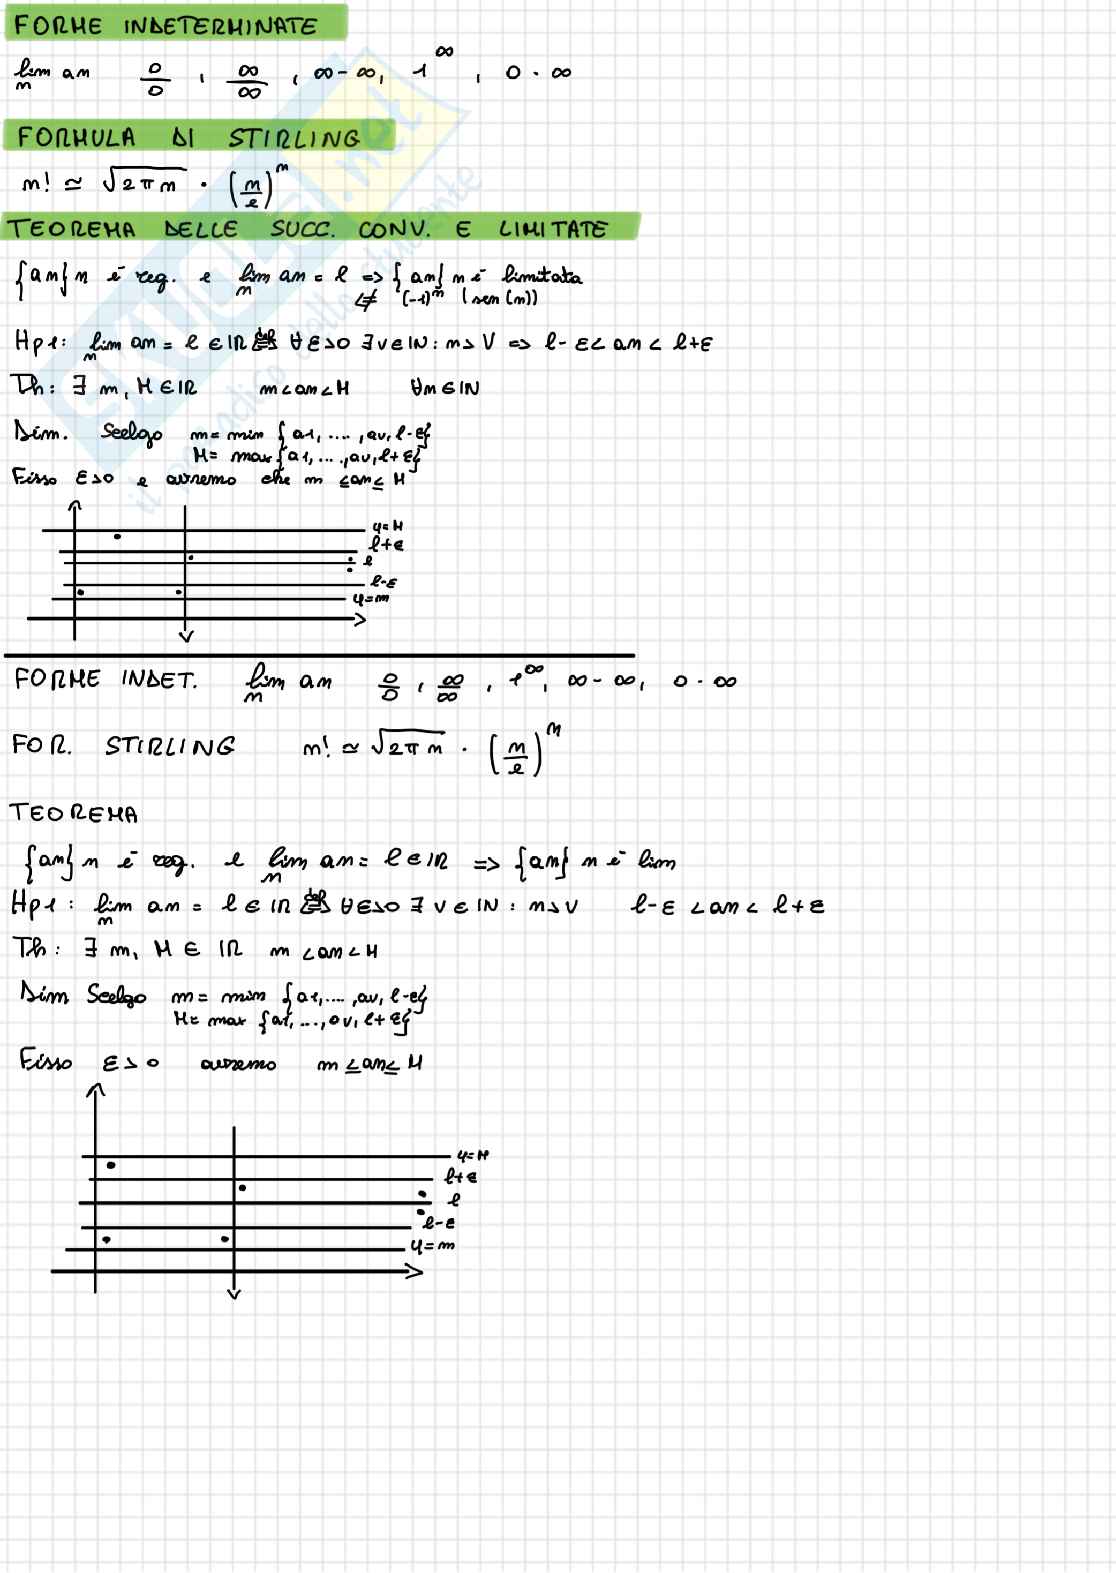 FORME INDETERMINATE
lim_n an 0/0 , ∞/∞ , ∞-∞, 1^∞ , 0·∞
FORMULA DI STIRLING
n! ≃ √(2πn) · (n/e)^n
TEOREMA DELLE SUCC. CONV. E LIMITATE
{an}n è reg. e lim_n an = l => {an}n è limitata
<≠ (-1)^n (sen(n))
Hp1: lim_n an = l ∈ IR <=>def ∀ε>0 ∃ν∈IN: n>ν => l-ε< an < l+ε
Th: ∃ m, M ∈ IR m<an<M ∀n∈IN
Dim. Scelgo m= min {a1, ...., aν, l-ε}
M= max {a1, ...., aν, l+ε}
Fisso ε>0 e avremo che m ≤an≤ M
y=M
l+ε
l
l-ε
y=m
FORME INDET. lim_n an 0/0 , ∞/∞ , 1^∞, ∞-∞, 0·∞
FOR. STIRLING n! ≃ √(2πn) · (n/e)^n
TEOREMA
{an}n è reg. e lim_n an = l ∈ IR => {an}n è lim
Hp1: lim_n an = l ∈ IR <=>def ∀ε>0 ∃ν∈IN: n>ν l-ε <an< l+ε
Th: ∃ m, M ∈ IR m <an< M
Dim Scelgo m= min {a1,...., aν, l-ε}
M= max {a1, ..., aν, l+ε}
Fisso ε>0 avremo m ≤an≤ M
y=M
l+ε
l
l-ε
y=m